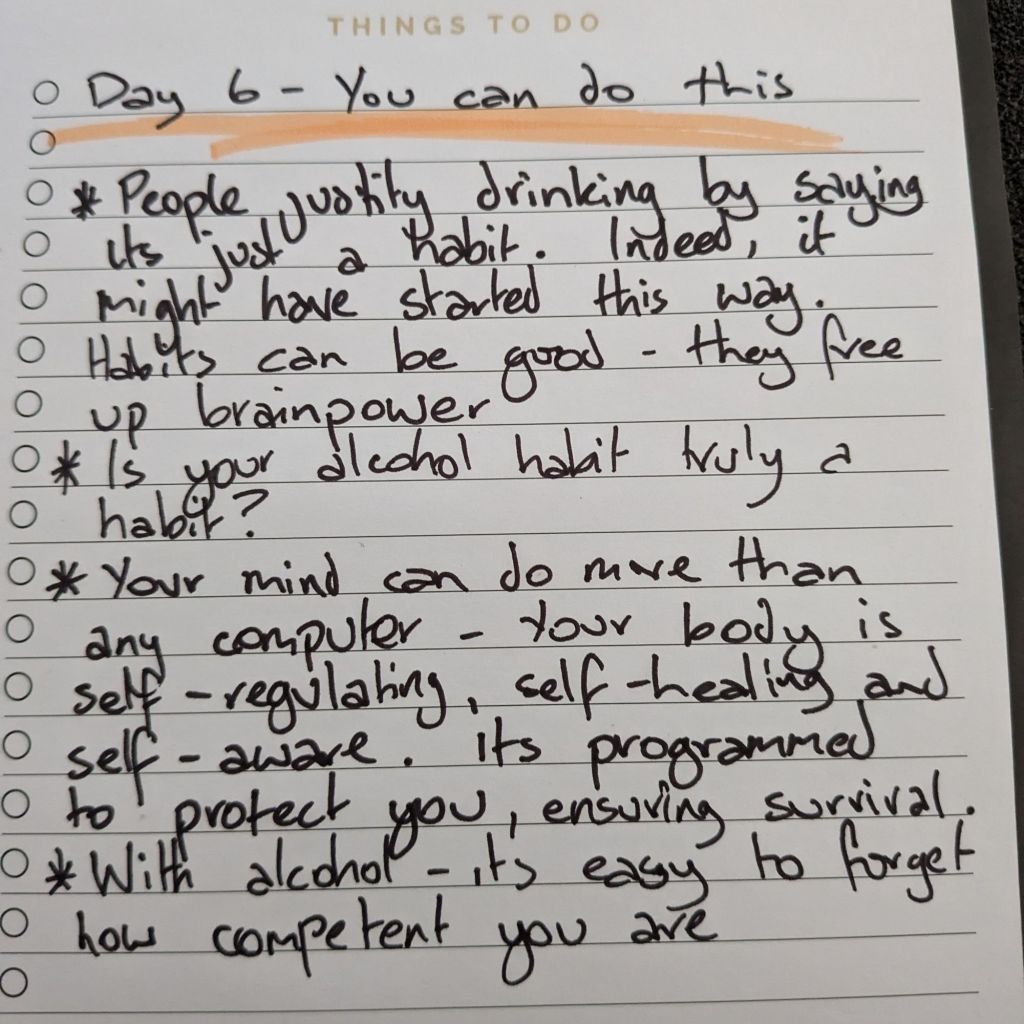 THINGS TO DO
Day 6 - You can do this
* People justify drinking by saying
its just a habit. Indeed, it
might have started this way.
Habits can be good - they free
up brainpower
* Is your alcohol habit truly a
habit?
* Your mind can do more than
any computer - Your body is
self-regulating, self-healing and
self-aware. Its programmed
to protect you, ensuring survival.
* With alcohol - it's easy to forget
how competent you are